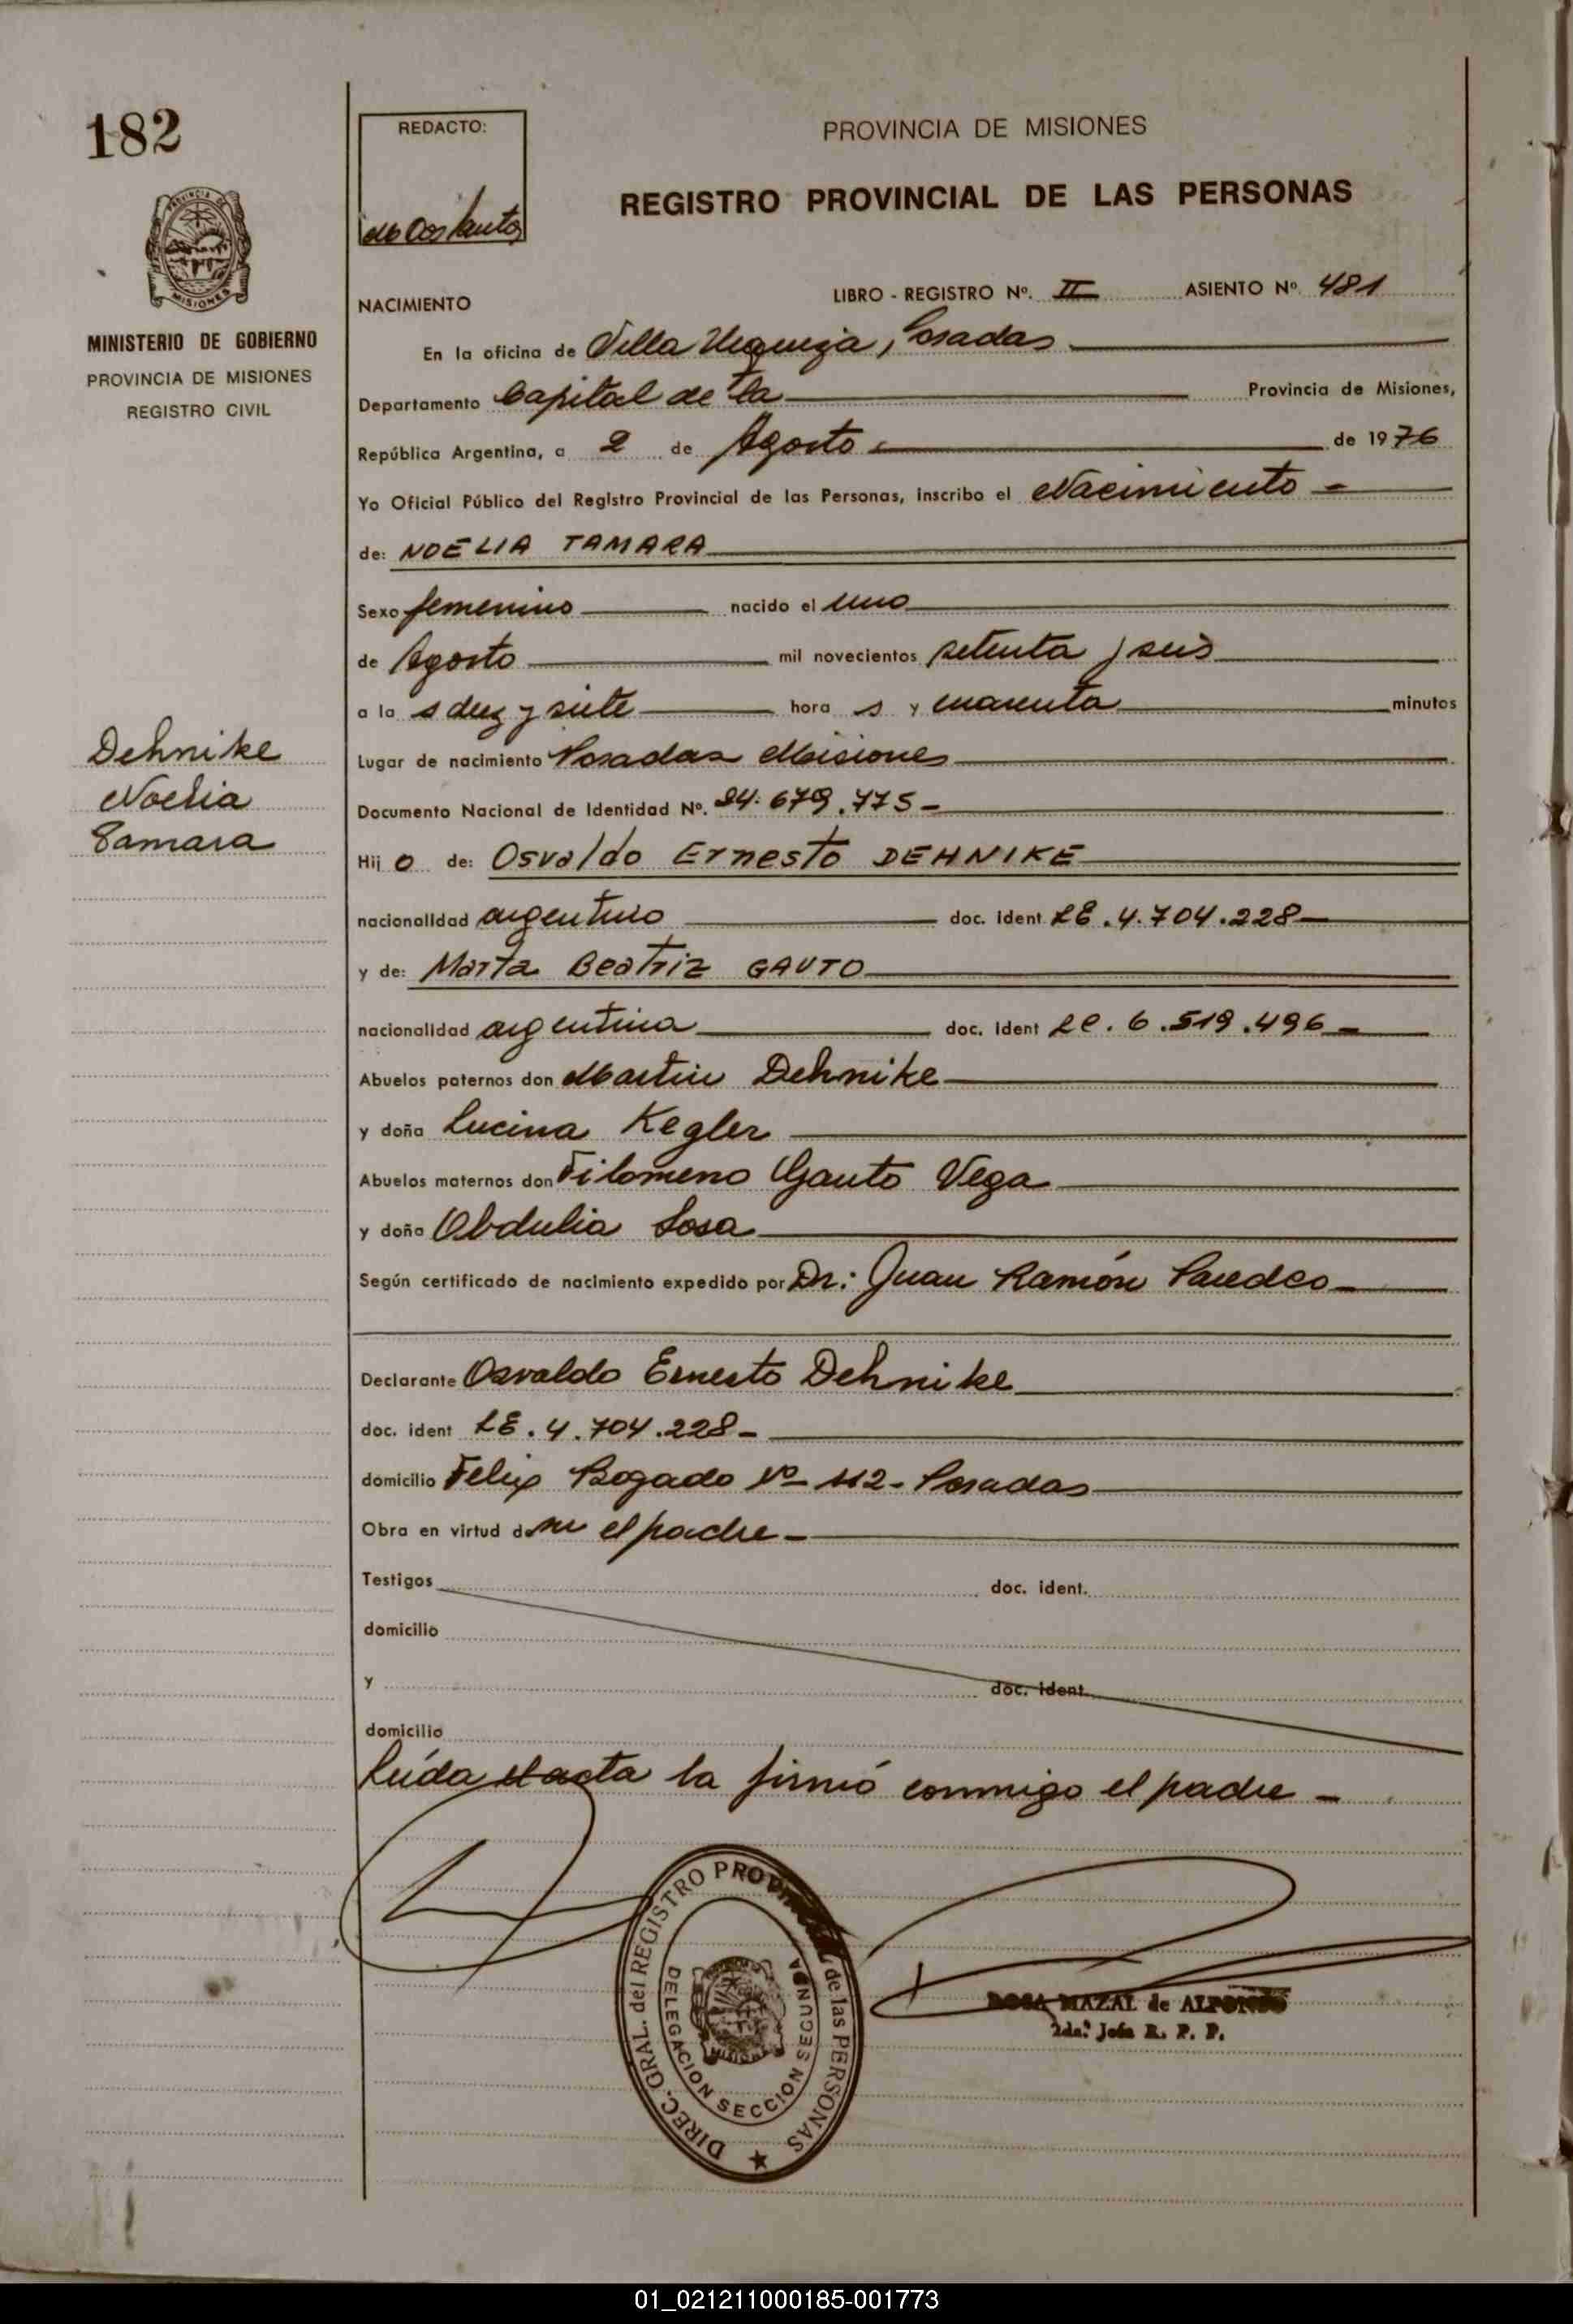 182
REDACTO:
de Dos Santos
PROVINCIA DE MISIONES
REGISTRO PROVINCIAL DE LAS PERSONAS
MISIONES
MINISTERIO DE GOBIERNO
PROVINCIA DE MISIONES
REGISTRO CIVIL
NACIMIENTO
LIBRO - REGISTRO Nº. II ASIENTO Nº. 481
En la oficina de Villa Urquiza, Posadas
Departamento Capital de la Provincia de Misiones,
República Argentina, a 2 de Agosto de 1976
Yo Oficial Público del Registro Provincial de las Personas, inscribo el Nacimiento -
de: NOELIA TAMARA
Sexo femenino nacido el uno
de Agosto mil novecientos setenta y seis
a la s diez y siete hora s y cuarenta minutos
Dehnike
Noelia
Tamara
Lugar de nacimiento Posadas Misiones
Documento Nacional de Identidad Nº. 24.679.775-
Hij o de: Osvaldo Ernesto DEHNIKE
nacionalidad argentino doc. ident. LE.4.704.228-
y de: Marta Beatriz GAUTO
nacionalidad argentina doc. ident LC.6.519.496-
Abuelos paternos don Martin Dehnike
y doña Lucina Kegler
Abuelos maternos don Filomeno Gauto Vega
y doña Obdulia Sosa
Según certificado de nacimiento expedido por Dr: Juan Ramón Paredes
Declarante Osvaldo Ernesto Dehnike
doc. ident LE.4.704.228-
domicilio Felix Bogado Nº 112- Posadas
Obra en virtud de ser el padre-
Testigos doc. ident.
domicilio
y doc. ident.
domicilio
Leída el acta la firmó conmigo el padre -
DIREC. GRAL. del REGISTRO PROVINCIAL de las PERSONAS
DELEGACION SECCION SEGUNDA
ROSA MAZAL de ALFONSO
2da. Jefa R. P. P.
01_021211000185-001773